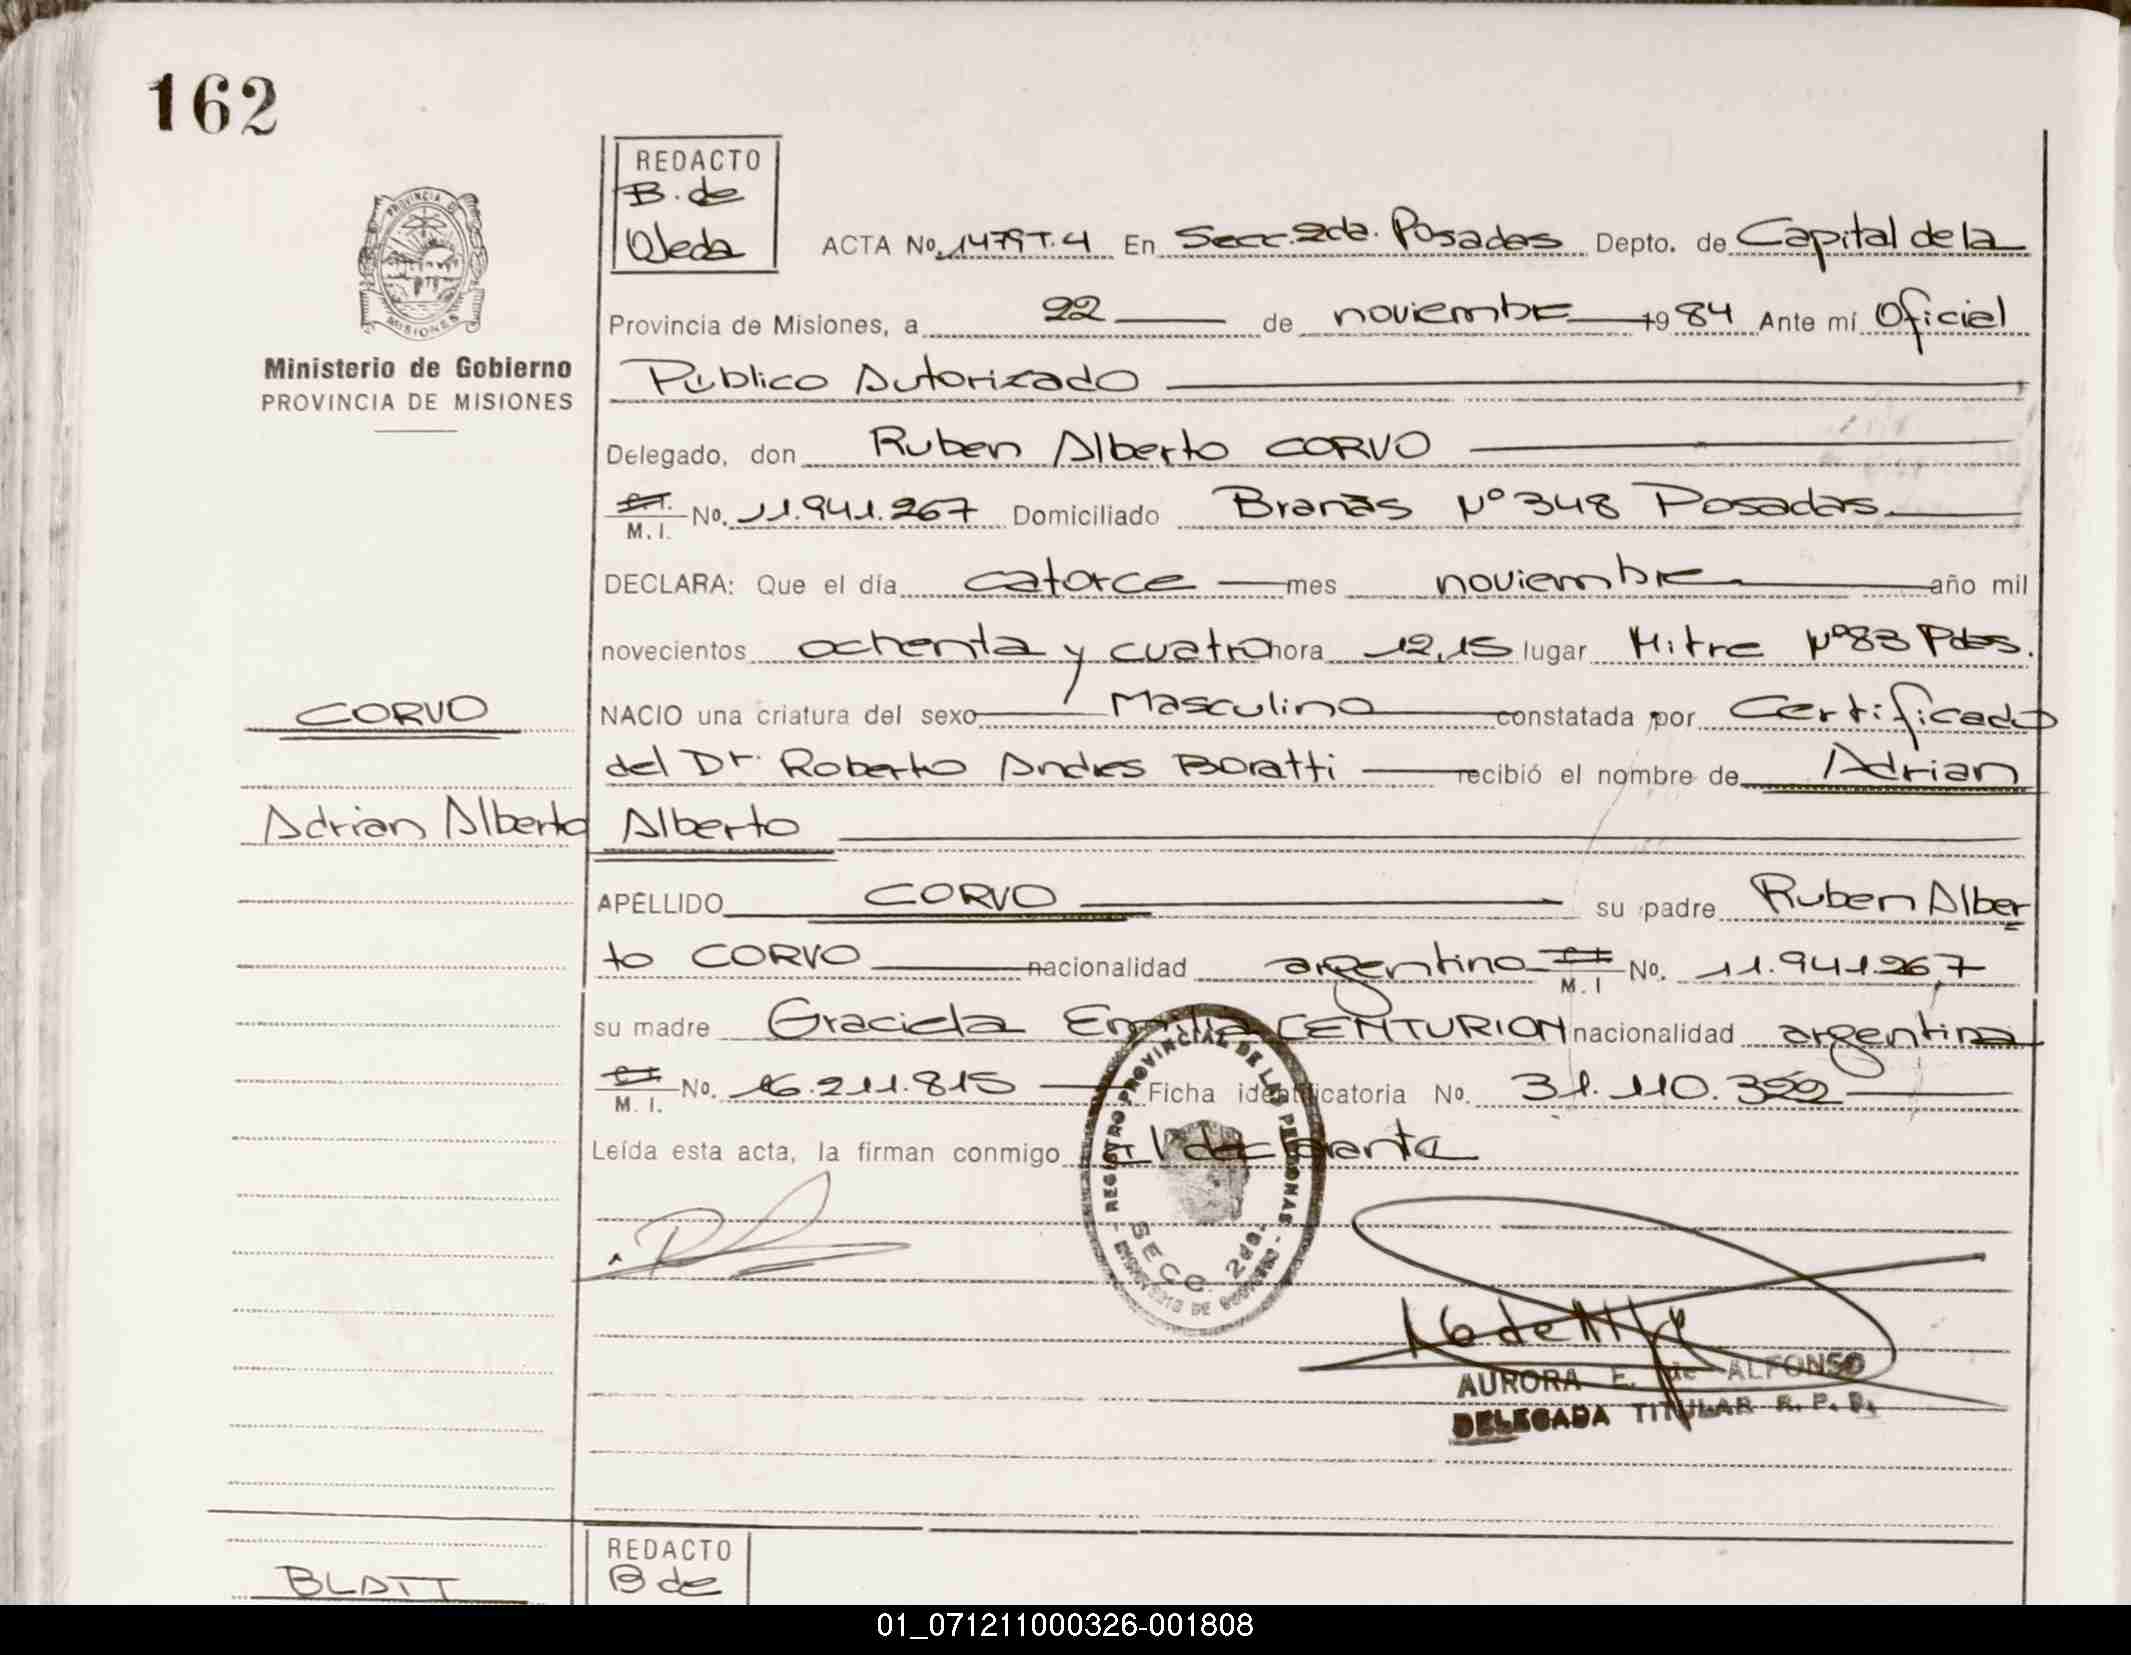 162
REDACTO
B. de
Ojeda
ACTA No. 1479 T. 4 En Secc. 2da. Posadas Depto. de Capital de la
Provincia de Misiones, a 22 de noviembre 1984 Ante mí Oficial
Ministerio de Gobierno
PROVINCIA DE MISIONES
Público Autorizado
Delegado, don Ruben Alberto CORVO
M. I. No. 11.941.267 Domiciliado Brañas Nº 348 Posadas
DECLARA: Que el día catorce mes noviembre año mil
novecientos ochenta y cuatro hora 12,15 lugar Mitre Nº 83 Pdas.
CORVO
NACIO una criatura del sexo Masculino constatada por Certificado
del Dr. Roberto Andres Boratti recibió el nombre de Adrian
Adrian Alberto
Alberto
APELLIDO CORVO su padre Ruben Alber
to CORVO nacionalidad argentino M. I No. 11.941.267
su madre Graciela Emilia CENTURION nacionalidad argentina
M. I. No. 16.211.815 Ficha identificatoria No. 31.110.322
Leída esta acta, la firman conmigo el declarante
REGISTRO PROVINCIAL DE LAS PERSONAS
SECC. 2da.
MINISTERIO DE GOBIERNO
AURORA E. de ALFONSO
DELEGADA TITULAR R. P. P.
REDACTO
B de
BLATT
01_071211000326-001808